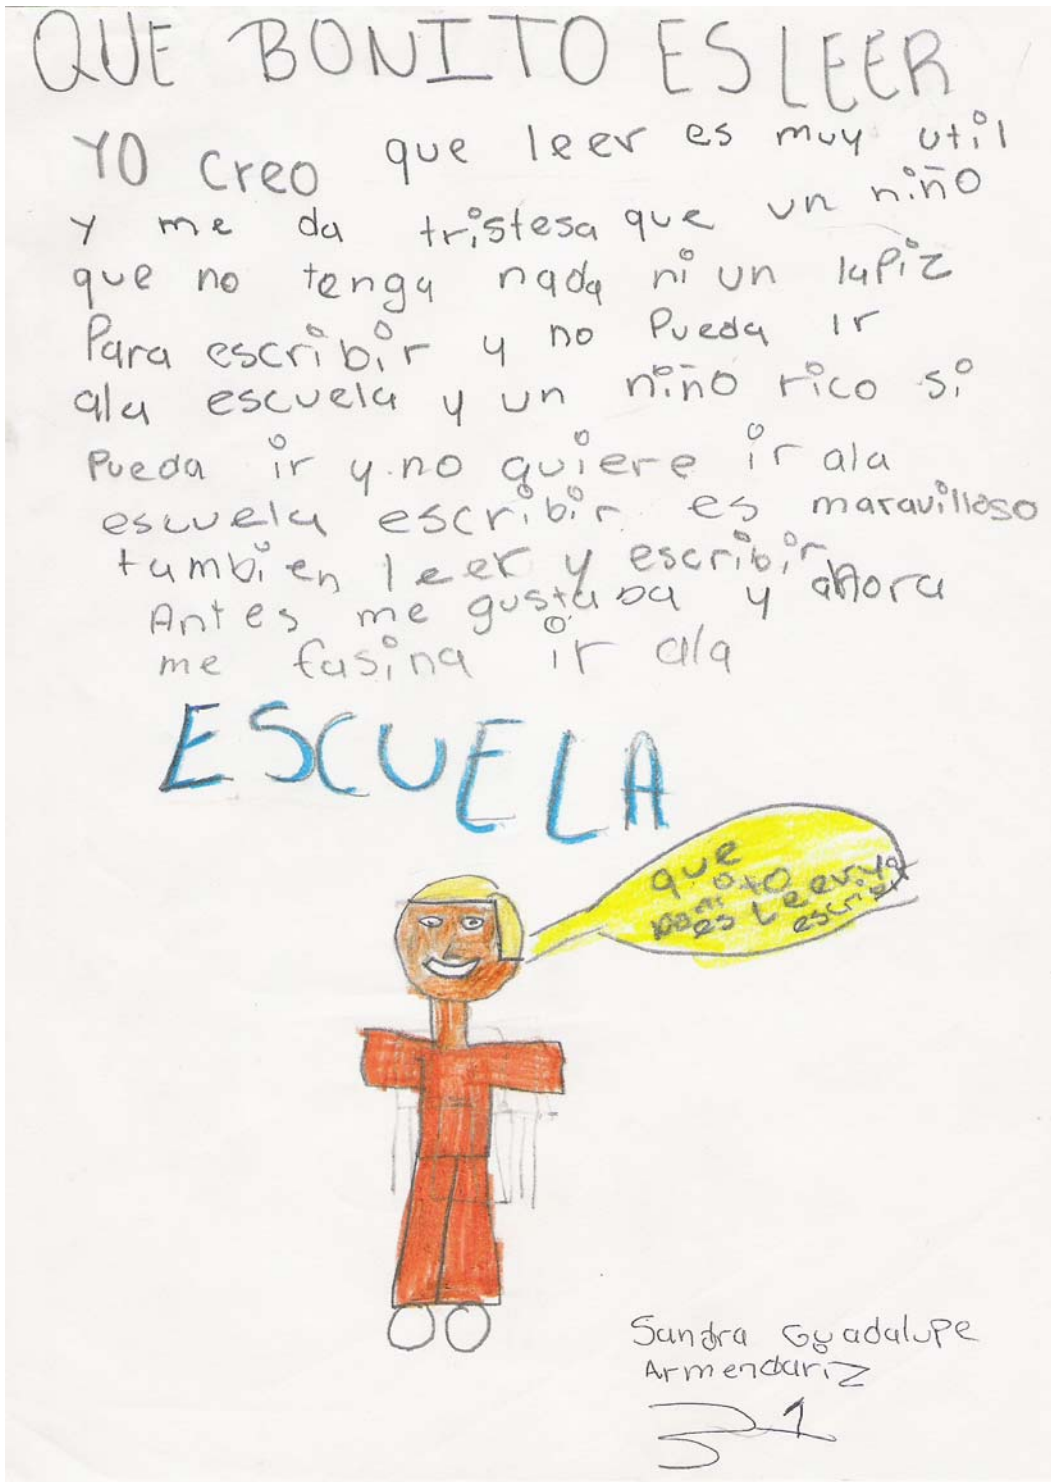 QUE BONITO ES LEER
YO creo que leer es muy util
y me da tristesa que un niño
que no tenga nada ni un lapiz
Para escribir y no Pueda ir
ala escuela y un niño rico si
Pueda ir y no quiere ir ala
escuela escribir es maravilloso
tambien leer y escribir
Antes me gustaba y ahora
me fasina ir ala
ESCUELA
que
bonito
es Leer
Sandra Guadalupe
Armendariz
3 1